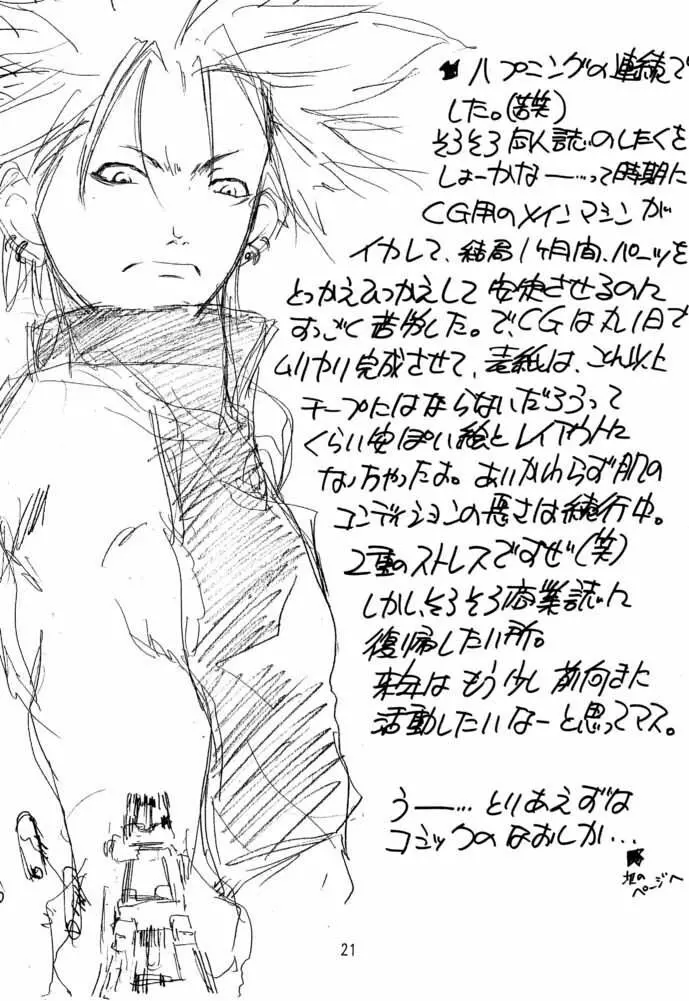 ハプニングの連続で
した。(苦笑)
そろそろ同人誌のしたくを
しょーかなー…って時期に
CG用のメインマシンが
イカレて、結局1ヶ月間、パーツを
とっかえひっかえして安定させるのに
すっごく苦労した。で、CGは丸1日で
ムリヤリ完成させて、表紙は、これ以上
チープにはならないだろうって
くらい安ぽい絵とレイアウトに
なっちゃったよ。あいかわらず肌の
コンディションの悪さは続行中。
2重のストレスですぜ(笑)
しかし、そろそろ商業誌に
復帰したい所。
来年はもう少し前向きに
活動したいなーと思ってマス。
うー…とりあえずは
コミックのなおしか…
次のページへ
21